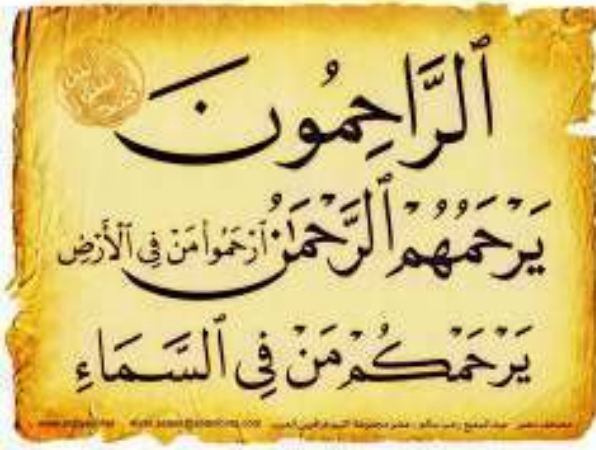 ٱلرَّاحِمُونَ
يَرْحَمُهُمُ ٱلرَّحْمَٰنُ ٱرْحَمُوا مَنْ فِي ٱلْأَرْضِ
يَرْحَمْكُمْ مَنْ فِي ٱلسَّمَاءِ